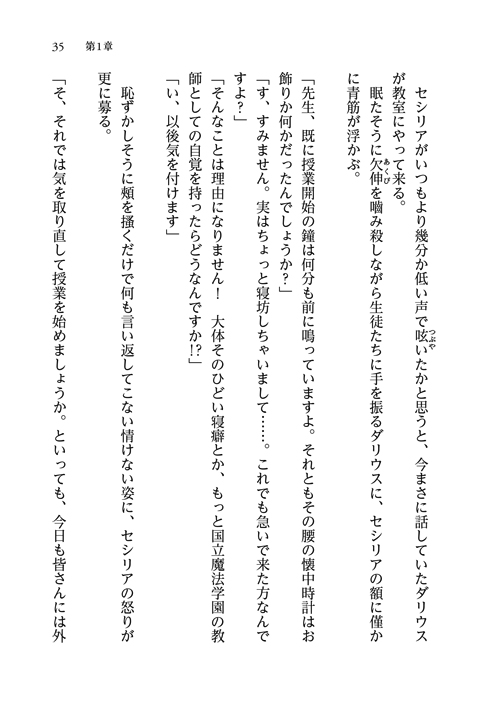 35　第1章
セシリアがいつもより幾分か低い声で呟いたかと思うと、今まさに話していたダリウス
が教室にやって来る。
眠たそうに欠伸を嚙み殺しながら生徒たちに手を振るダリウスに、セシリアの額に僅か
に青筋が浮かぶ。
「先生、既に授業開始の鐘は何分も前に鳴っていますよ。それともその腰の懐中時計はお
飾りか何かだったんでしょうか？」
「す、すみません。実はちょっと寝坊しちゃいまして……。これでも急いで来た方なんで
すよ？」
「そんなことは理由になりません！　大体そのひどい寝癖とか、もっと国立魔法学園の教
師としての自覚を持ったらどうなんですか!?」
「い、以後気を付けます」
恥ずかしそうに頰を搔くだけで何も言い返してこない情けない姿に、セシリアの怒りが
更に募る。
「そ、それでは気を取り直して授業を始めましょうか。といっても、今日も皆さんには外